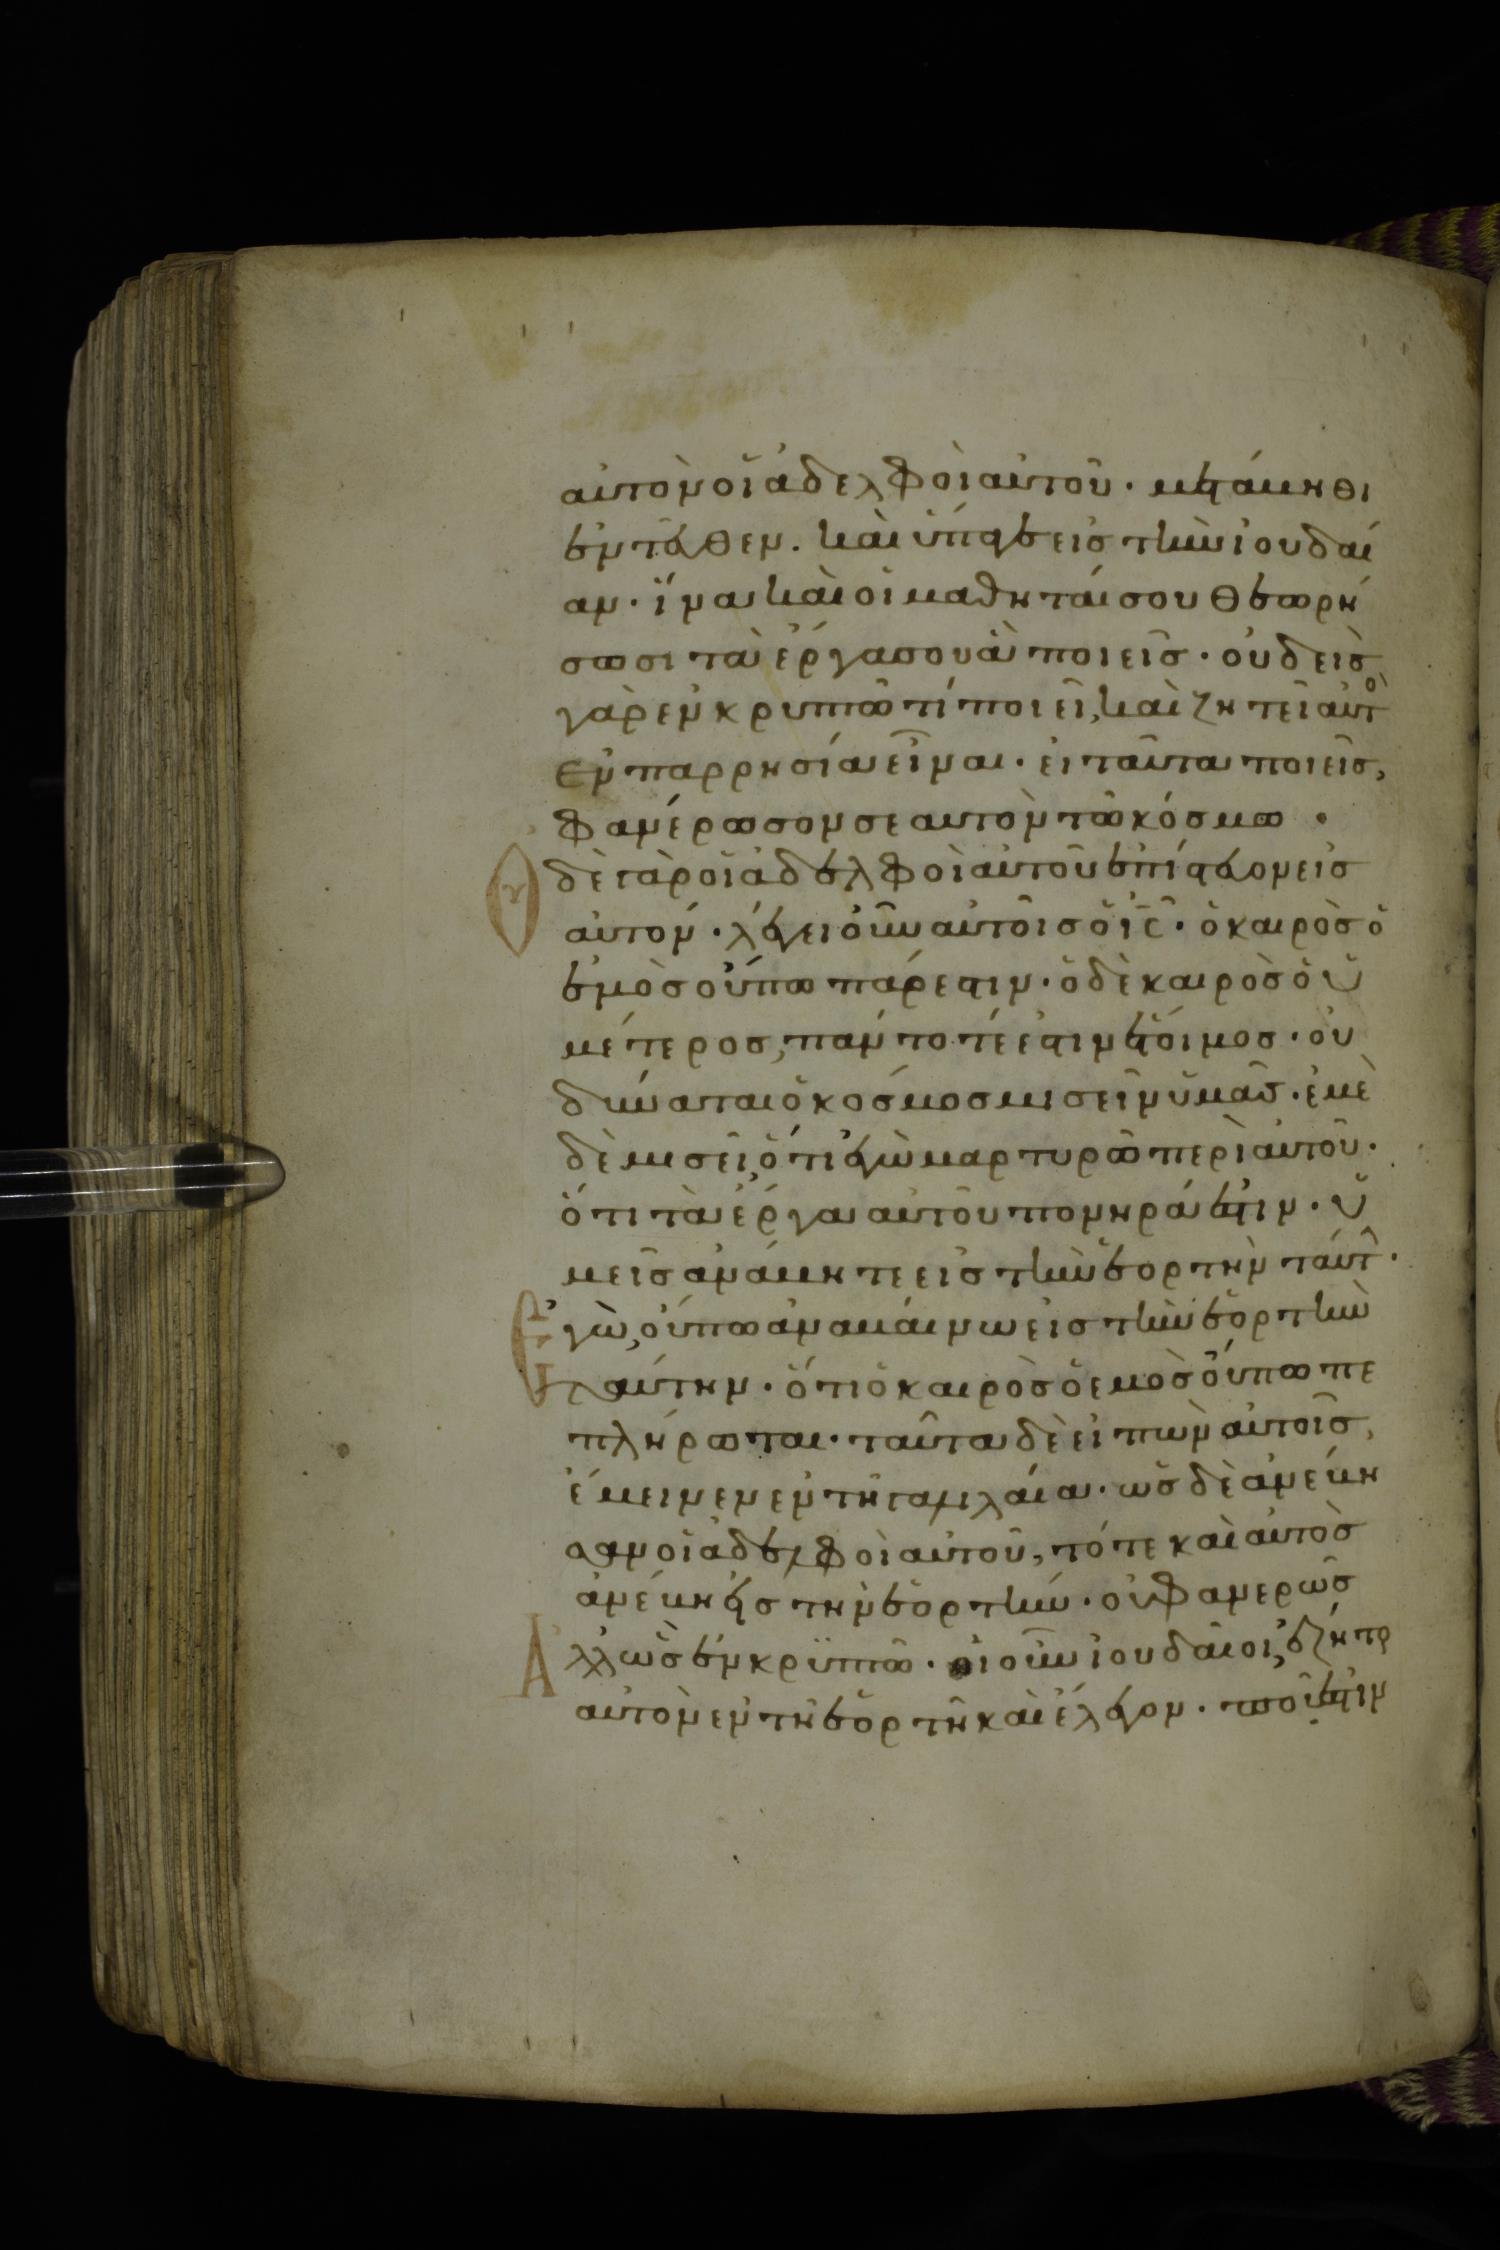 αὐτὸν οἱ ἀδελφοὶ αὐτοῦ · μετάβηθι
ἐντεῦθεν · καὶ ὕπαγε εἰς τὴν ἰουδαί
αν · ἵνα καὶ οἱ μαθηταί σου θεωρή
σωσι τὰ ἔργα σου ἃ ποιεῖς · οὐδεὶς
γὰρ ἐν κρυπτῶ τί ποιεῖ, καὶ ζητεῖ αὐτὸ
ἐν παρρησία εἶναι · εἰ ταῦτα ποιεῖς,
φανέρωσον σεαυτὸν τῶ κόσμω ·
Οὐδὲ γὰρ οἱ ἀδελφοὶ αὐτοῦ ἐπίστευον εἰς
αὐτόν · λέγει οὖν αὐτοῖς ὁ ἰς · ὁ καιρὸς ὁ
ἐμὸς οὔπω πάρεστιν · ὁ δὲ καιρὸς ὁ ὑ
μέτερος, πάντοτέ ἐστιν ἕτοιμος · οὐ
δύναται ὁ κόσμος μισεῖν ὑμᾶς · ἐμὲ
δὲ μισεῖ, ὅτι ἐγὼ μαρτυρῶ περὶ αὐτοῦ ·
ὅτι τὰ ἔργα αὐτοῦ πονηρά ἐστιν · ὑ
μεῖς ἀνάβητε εἰς τὴν ἑορτὴν ταύτ ·
Ἐγὼ, οὔπω ἀναβαίνω εἰς τὴν ἑορτὴν
ταύτην · ὅτι ὁ καιρὸς ὁ ἐμὸς οὔπω πε
πλήρωται · ταῦτα δὲ εἰπὼν αὐτοῖς,
ἔμεινεν ἐν τῆ γαλιλαία · ὡς δὲ ἀνέβη
σαν οἱ ἀδελφοὶ αὐτοῦ, τότε καὶ αὐτὸς
ἀνέβη εἰς τὴν ἑορτήν · οὐ φανερῶς
Ἀλλ' ὡς ἐν κρυπτῶ · οἱ οὖν ἰουδαῖοι, ἐζήτο
αὐτὸν ἐν τῆ ἑορτῆ καὶ ἔλεγον · ποῦ ἐστιν